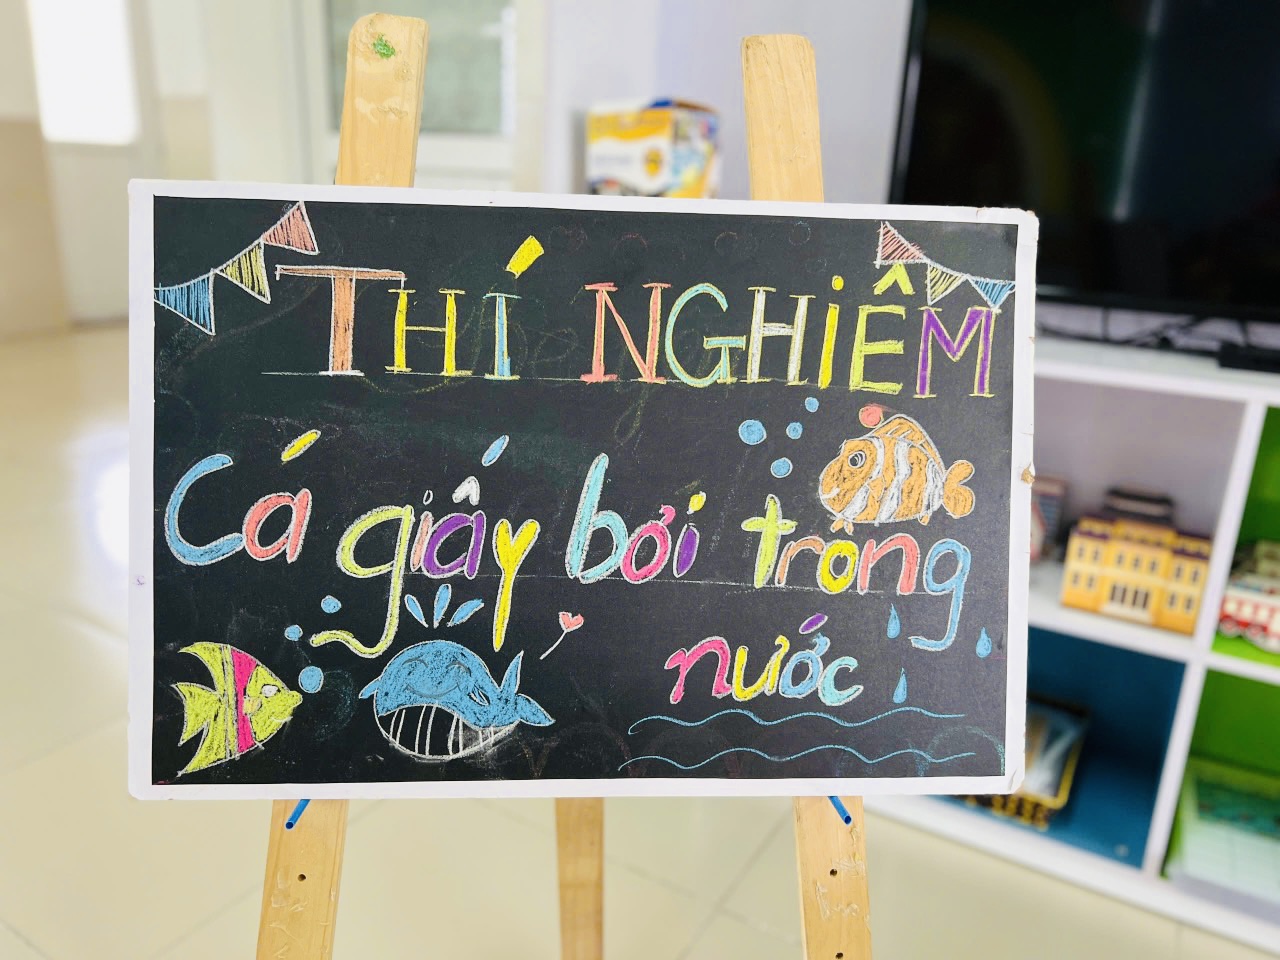 THÍ NGHIÊM
Cá giấy bơi trong
nước